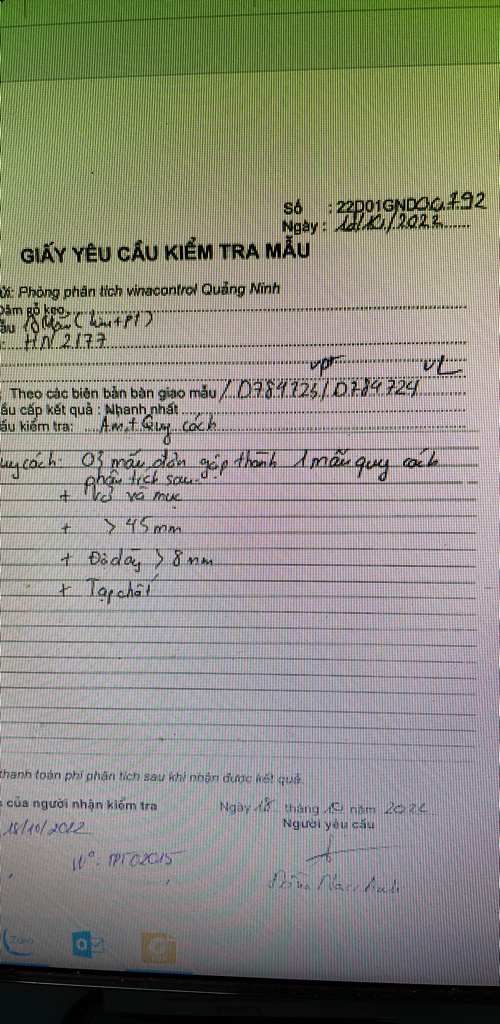 Số : 22D01GND00792
Ngày : 18/10/2022
GIẤY YÊU CẦU KIỂM TRA MẪU
ửi: Phòng phân tích vinacontrol Quảng Ninh
Dăm gỗ keo
ẫu 10 Mẫu (
: HN 2177
VPT VL
Theo các biên bản bàn giao mẫu / D784725/D784724
ầu cấp kết quả : Nhanh nhất
ầu kiểm tra: Ẩm + Quy cách
uy cách: 03 mẫu đơn gộp thành 1 mẫu quy cách
phân tích sau:
+ Vỏ và mục
+ > 45mm
+ Độ dày > 8 mm
+ Tạp chất
thanh toán phí phân tích sau khi nhận được kết quả.
của người nhận kiểm tra
Ngày 18 tháng 10 năm 2022
Người yêu cầu
18/10/2022
N°: TPT02015
Zalo